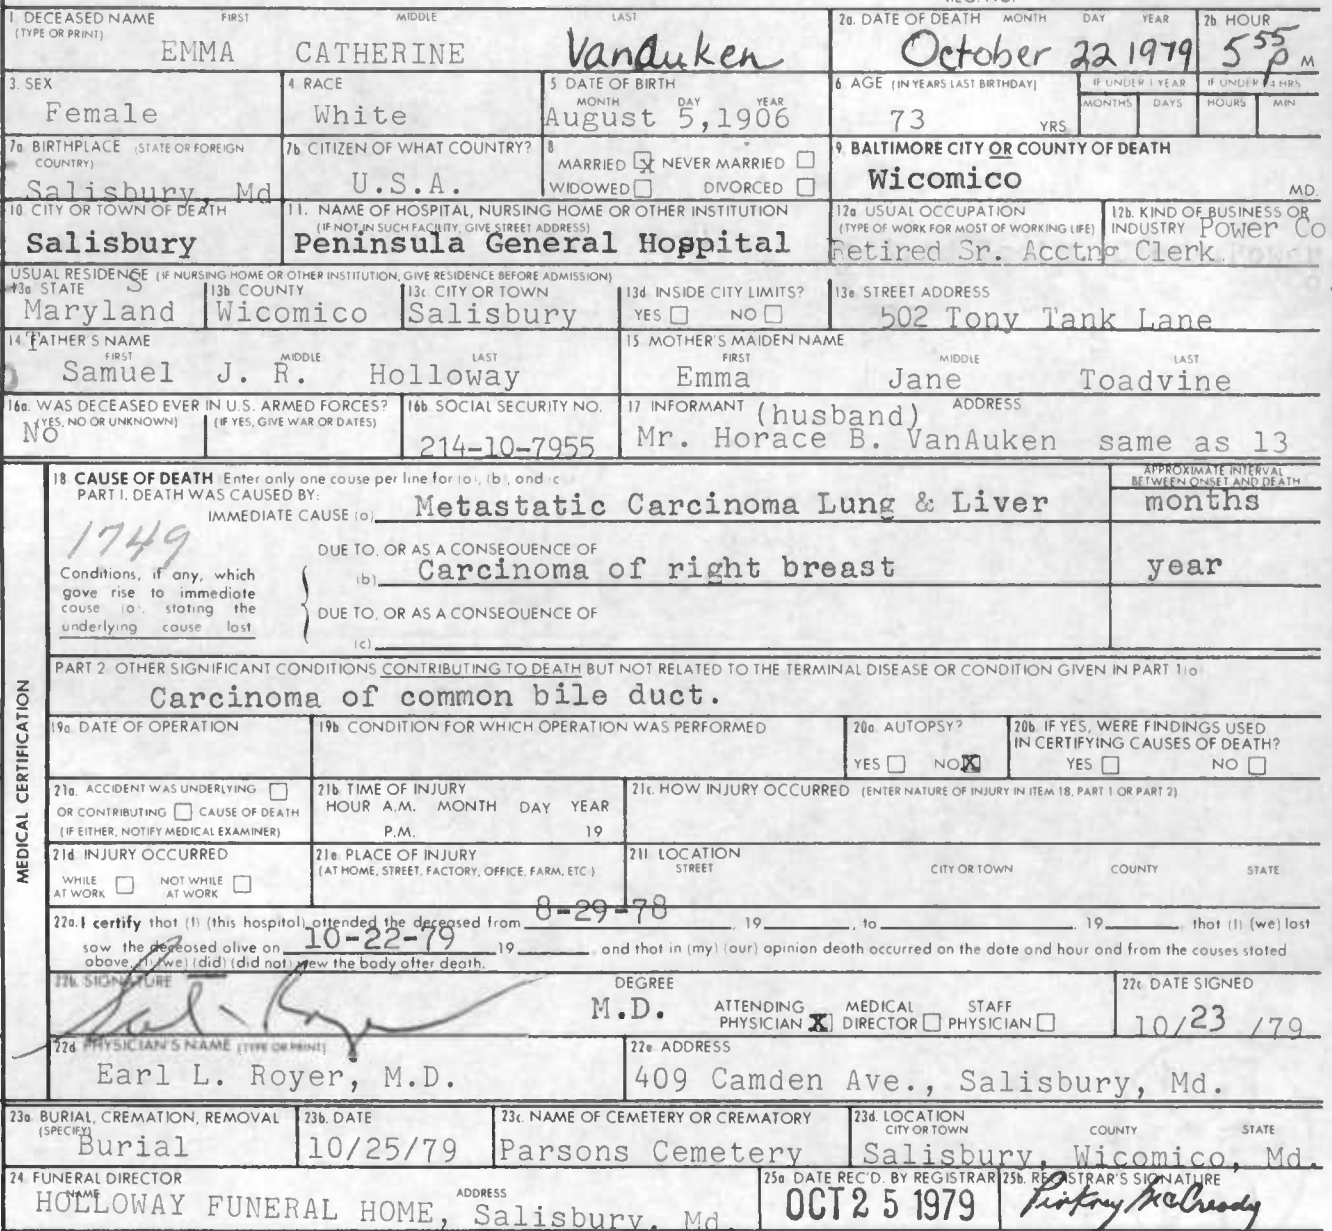 1. DECEASED NAME FIRST MIDDLE LAST
(TYPE OR PRINT)
EMMA CATHERINE VanAuken
2a. DATE OF DEATH MONTH DAY YEAR
October 22 1979
2b HOUR
5 55 P M
3. SEX
Female
4 RACE
White
5 DATE OF BIRTH
MONTH DAY YEAR
August 5,1906
6 AGE (IN YEARS LAST BIRTHDAY)
73 YRS
IF UNDER 1 YEAR
MONTHS DAYS
IF UNDER 24 HRS
HOURS MIN
7a BIRTHPLACE (STATE OR FOREIGN
COUNTRY)
Salisbury, Md
7b CITIZEN OF WHAT COUNTRY?
U.S.A.
8
MARRIED X NEVER MARRIED
WIDOWED DIVORCED
9. BALTIMORE CITY OR COUNTY OF DEATH
Wicomico MD.
10 CITY OR TOWN OF DEATH
Salisbury
11. NAME OF HOSPITAL, NURSING HOME OR OTHER INSTITUTION
(IF NOT IN SUCH FACILITY, GIVE STREET ADDRESS)
Peninsula General Hospital
12a USUAL OCCUPATION
(TYPE OF WORK FOR MOST OF WORKING LIFE)
Retired Sr. Acctng Clerk
12b. KIND OF BUSINESS OR
INDUSTRY Power Co
USUAL RESIDENCE (IF NURSING HOME OR OTHER INSTITUTION, GIVE RESIDENCE BEFORE ADMISSION)
13a STATE
Maryland
13b COUNTY
Wicomico
13c CITY OR TOWN
Salisbury
13d INSIDE CITY LIMITS?
YES NO
13e STREET ADDRESS
502 Tony Tank Lane
14 FATHER'S NAME
FIRST MIDDLE LAST
Samuel J. R. Holloway
15 MOTHER'S MAIDEN NAME
FIRST MIDDLE LAST
Emma Jane Toadvine
16a. WAS DECEASED EVER IN U.S. ARMED FORCES?
(YES, NO OR UNKNOWN) (IF YES, GIVE WAR OR DATES)
No
16b SOCIAL SECURITY NO.
214-10-7955
17 INFORMANT (husband) ADDRESS
Mr. Horace B. VanAuken same as 13
18 CAUSE OF DEATH Enter only one cause per line for (a), (b), and (c
PART I. DEATH WAS CAUSED BY:
APPROXIMATE INTERVAL
BETWEEN ONSET AND DEATH
IMMEDIATE CAUSE (a) Metastatic Carcinoma Lung & Liver months
1749
DUE TO, OR AS A CONSEQUENCE OF
(b) Carcinoma of right breast year
Conditions, if any, which
gave rise to immediate
cause (a), stating the
underlying cause last
DUE TO, OR AS A CONSEQUENCE OF
(c)
MEDICAL CERTIFICATION
PART 2 OTHER SIGNIFICANT CONDITIONS CONTRIBUTING TO DEATH BUT NOT RELATED TO THE TERMINAL DISEASE OR CONDITION GIVEN IN PART 1(a)
Carcinoma of common bile duct.
19a DATE OF OPERATION
19b CONDITION FOR WHICH OPERATION WAS PERFORMED
20a AUTOPSY?
YES NO X
20b IF YES, WERE FINDINGS USED
IN CERTIFYING CAUSES OF DEATH?
YES NO
21a. ACCIDENT WAS UNDERLYING
OR CONTRIBUTING CAUSE OF DEATH
(IF EITHER, NOTIFY MEDICAL EXAMINER)
21b TIME OF INJURY
HOUR A.M. MONTH DAY YEAR
P.M. 19
21c. HOW INJURY OCCURRED (ENTER NATURE OF INJURY IN ITEM 18, PART 1 OR PART 2)
21d INJURY OCCURRED
WHILE AT WORK NOT WHILE AT WORK
21e PLACE OF INJURY
(AT HOME, STREET, FACTORY, OFFICE, FARM, ETC)
21f LOCATION
STREET CITY OR TOWN COUNTY STATE
22a. I certify that (I) (this hospital) attended the deceased from 8-29-78 , 19 , to 19 that (I) (we) last
saw the deceased alive on 10-22-79 19 and that in (my) (our) opinion death occurred on the date and hour and from the causes stated
above, (I) (we) (did) (did not) view the body after death.
22b. SIGNATURE
DEGREE
M.D.
ATTENDING PHYSICIAN X MEDICAL DIRECTOR STAFF PHYSICIAN
22c DATE SIGNED
10/23 /79
22d PHYSICIAN'S NAME (TYPE OR PRINT)
Earl L. Royer, M.D.
22e ADDRESS
409 Camden Ave., Salisbury, Md.
23a. BURIAL, CREMATION, REMOVAL
(SPECIFY)
Burial
23b. DATE
10/25/79
23c. NAME OF CEMETERY OR CREMATORY
Parsons Cemetery
23d. LOCATION
CITY OR TOWN COUNTY STATE
Salisbury, Wicomico, Md.
24 FUNERAL DIRECTOR
NAME ADDRESS
HOLLOWAY FUNERAL HOME, Salisbury, Md.
25a DATE REC'D. BY REGISTRAR
OCT 25 1979
25b. REGISTRAR'S SIGNATURE
Pinkney McCready